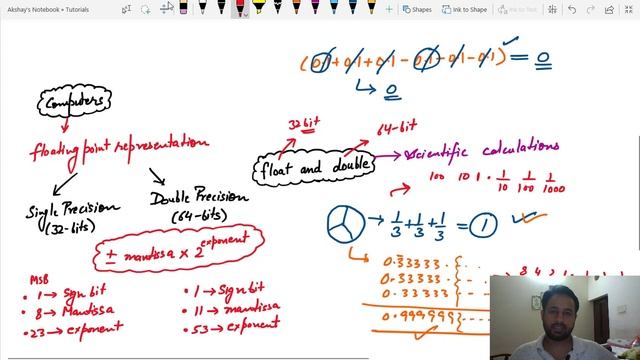 Akshay's Notebook » Tutorials
Shapes
Ink to Shape
Ink to Text
(0.1 + 0.1 + 0.1 - 0.1 - 0.1 - 0.1) = 0
0
Computers
floating point representation
Single Precision
(32-bits)
Double Precision
(64-bits)
± mantissa × 2^exponent
MSB
• 1 → Sign bit
• 8 → Mantissa
• 23 → exponent
• 1 → Sign bit
• 11 → mantissa
• 53 → exponent
32 bit
64-bit
float and double
Scientific calculations
100 10 1 . 1/10 1/100 1/1000
1/3 + 1/3 + 1/3 = 1
0.33333.
0.33333.
0.33333
0.999999